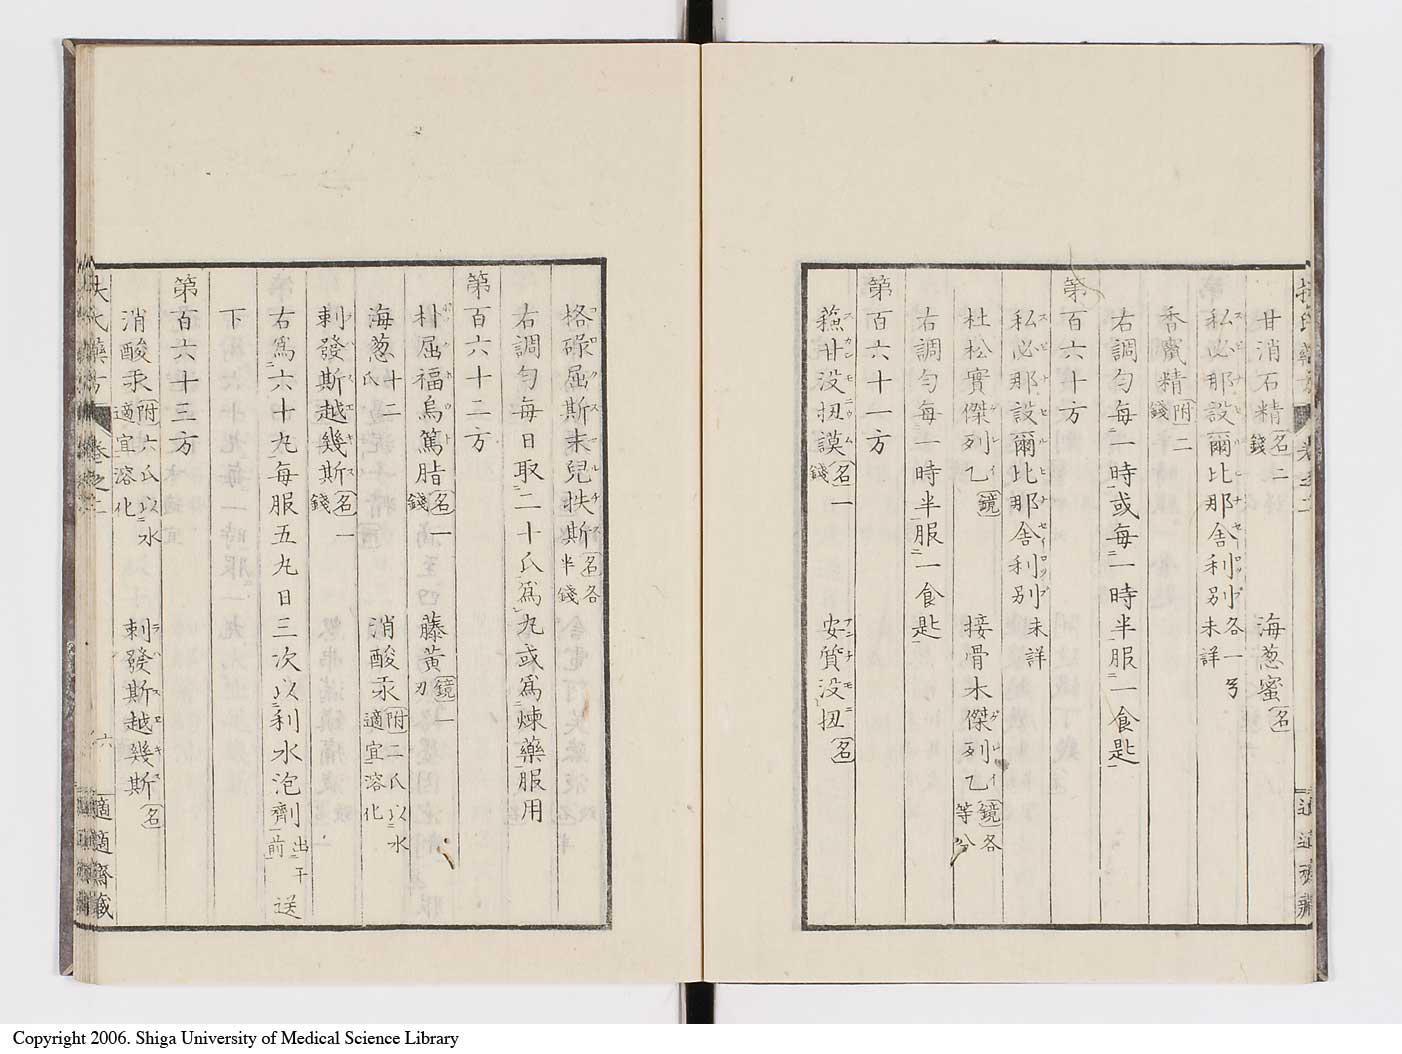 甘消石精名二錢　海葱蜜名
私必那設爾比那舎利別各一ㄢ未詳
香竄精附二錢
右調匀毎一時或毎一時半服一食匙
第百六十方
私必那設爾比那舎利別未詳
杜松實傑列乙鏡　接骨木傑列乙鏡各等分
右調匀毎一時半服一食匙
第百六十一方
蘓甘没扭謨名一錢　安質没扭名
格碌屈斯末兒帙斯名各半錢
右調匀毎日取二十氏爲丸或爲煉藥服用
第百六十二方
朴屈福烏篤脂名一錢　藤黄鏡一刀
海葱十二氏　消酸汞附二氏以水適宜溶化
刺發斯越幾斯名一錢
右爲六十丸毎服五丸日三次以利水泡劑出于前送
下
第百六十三方
消酸汞附六氏以水適宜溶化　刺發斯越幾斯名
扶氏藥方　卷之二　六　適適齋藏
Copyright 2006. Shiga University of Medical Science Library